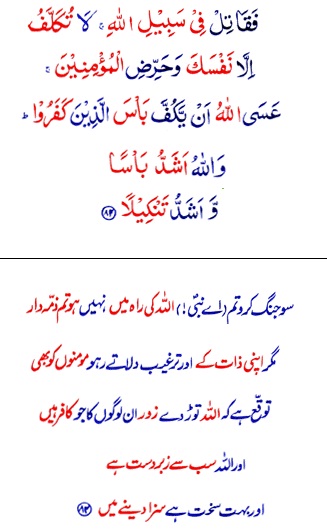 فَقَاتِلۡ فِىۡ سَبِيۡلِ اللّٰهِ‌ ۚ لَا تُكَلَّفُ
اِلَّا نَفۡسَكَ‌ وَحَرِّضِ الۡمُؤۡمِنِيۡنَ‌ ۚ
عَسَى اللّٰهُ اَنۡ يَّكُفَّ بَاۡسَ الَّذِيۡنَ كَفَرُوۡا‌ ؕ
وَاللّٰهُ اَشَدُّ بَاۡسًا
وَّ اَشَدُّ تَنۡكِيۡلًا ﴿۸۴﴾
سو جنگ کرو تم (اے نبیؐ!) اللہ کی راہ میں نہیں ہو تم ذمّہ دار
مگر اپنی ذات کے اور ترغیب دلاتے رہو مومنوں کو بھی
توقّع ہے کہ اللہ توڑ دے زور ان لوگوں کا جو کافر ہیں
اور اللہ سب سے زبردست ہے
اور بہت سخت ہے سزا دینے میں ﴿۸۴﴾